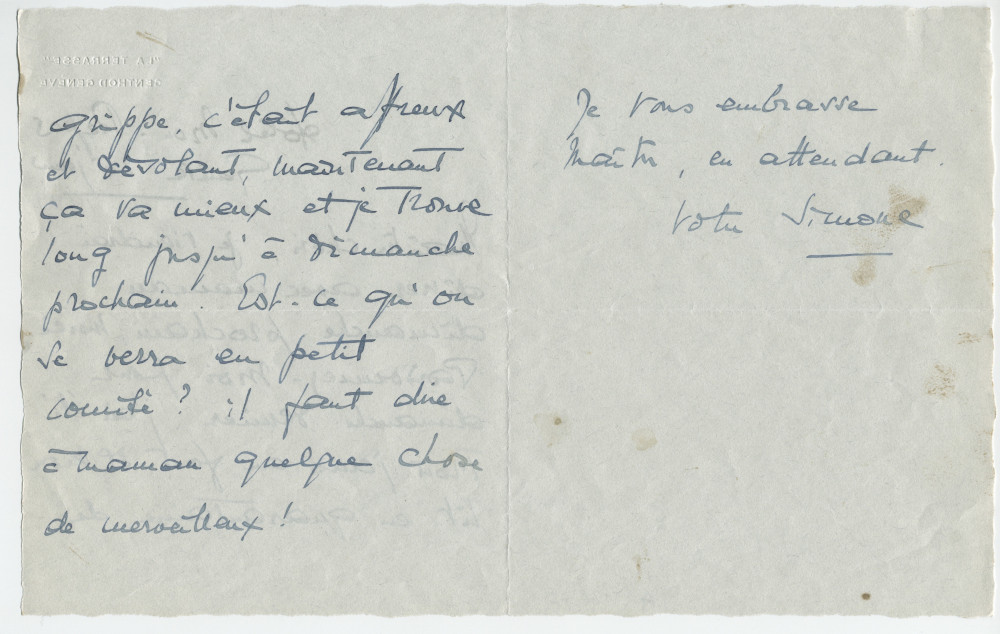 grippe. c'était affreux
et dévolant, maintenant
ça va mieux et je trouve
long jusqu'à dimanche
prochain. Est-ce qu'on
se verra en petit
comité ? il faut dire
à maman quelque chose
de merveilleux !
Je vous embrasse
Maître, en attendant.
votre Simone